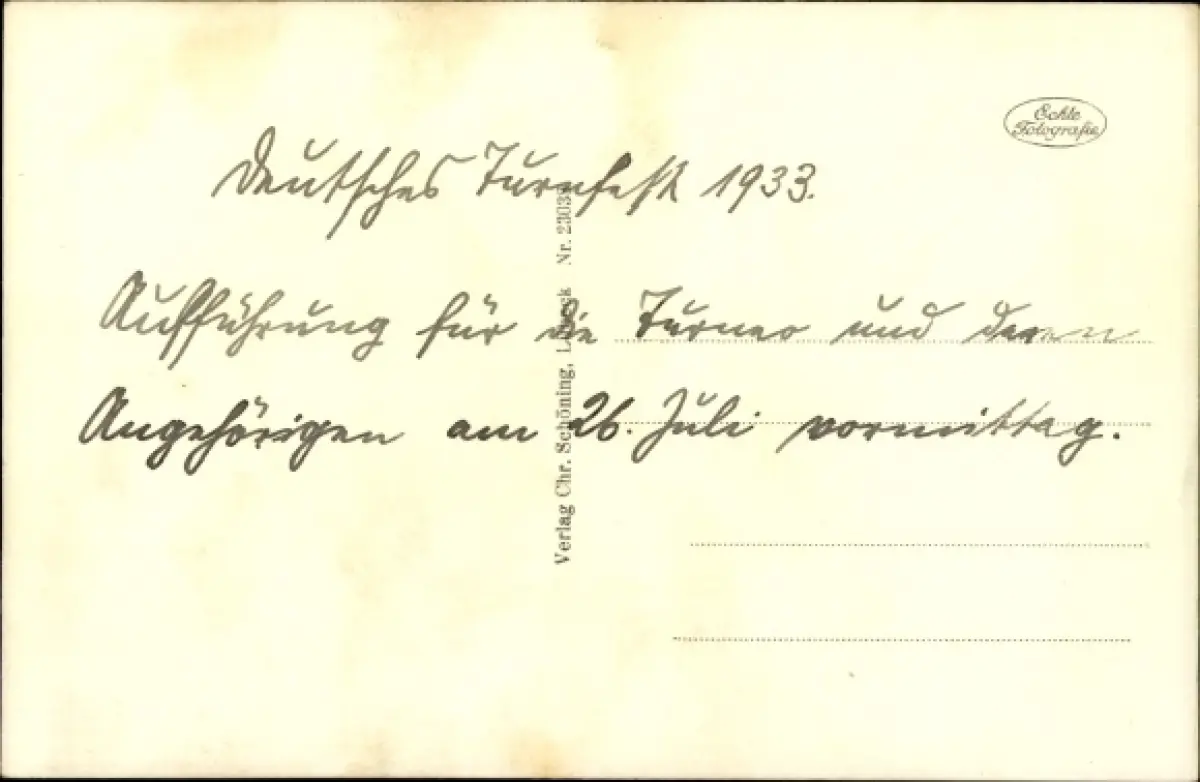 Echte
Fotografie
Deutsches Turnfest 1933.
Aufführung für die Turner und deren
Angehörigen am 26. Juli vormittag.
Verlag Chr. Schöning, Lübeck Nr. 2303